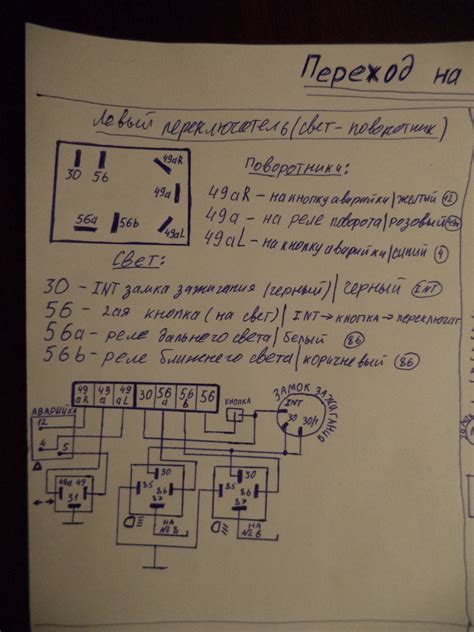 Переход на
Левый переключатель (свет-поворотник)
30 56 49aR
49a
56a 56b 49aL
Поворотники:
49aR - на кнопку аварийки/желтый 12
49a - на реле поворота/розовый
49aL - на кнопку аварийки/синий 4
Свет:
30 - INT замка зажигания (черный)/черный INT
56 - 2ая кнопка (на свет)/INT→кнопка→переключат
56a - реле дальнего света/белый 86
56b - реле ближнего света/коричневый 86
49aR 49a 49aL 30 56a 56b 56
КНОПКА
ЗАМОК ЗАЖИГАНИЯ
INT
30 30/1
АВАРИЙКА
12
4 5
49a 49
31
30
85 86
87
НА
№ 8
30
85 86
87
НА
№ 6